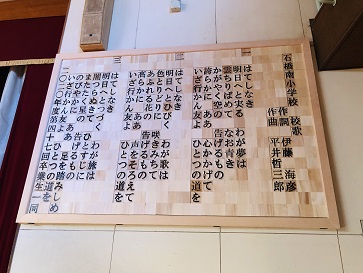 石橋南小学校　校歌
作詞　伊藤　海彦
作曲　平井哲三郎
はてしなき　わが夢は
明日へと実る
雲ちりばめて　なお青き
かがやく空の　告げるもの
誇らかにあおぎ　心かかげて
いざ行かん友よ　ひとつの道を
はてしなき　わが歌は
明日へとひびく
色とりどりに　咲きみちて
あふれる花の　告げるもの
高らかにあわせ　声をそろえて
いざ行かん友よ　ひとつの道を
はてしなき　わが旅は
明日へとつづく
闇つらぬきて　ひとすじに
またたく星の　告げるもの
のびやかにめざし　足なみそろえ
いざ行かん友よ　ひとつの道を